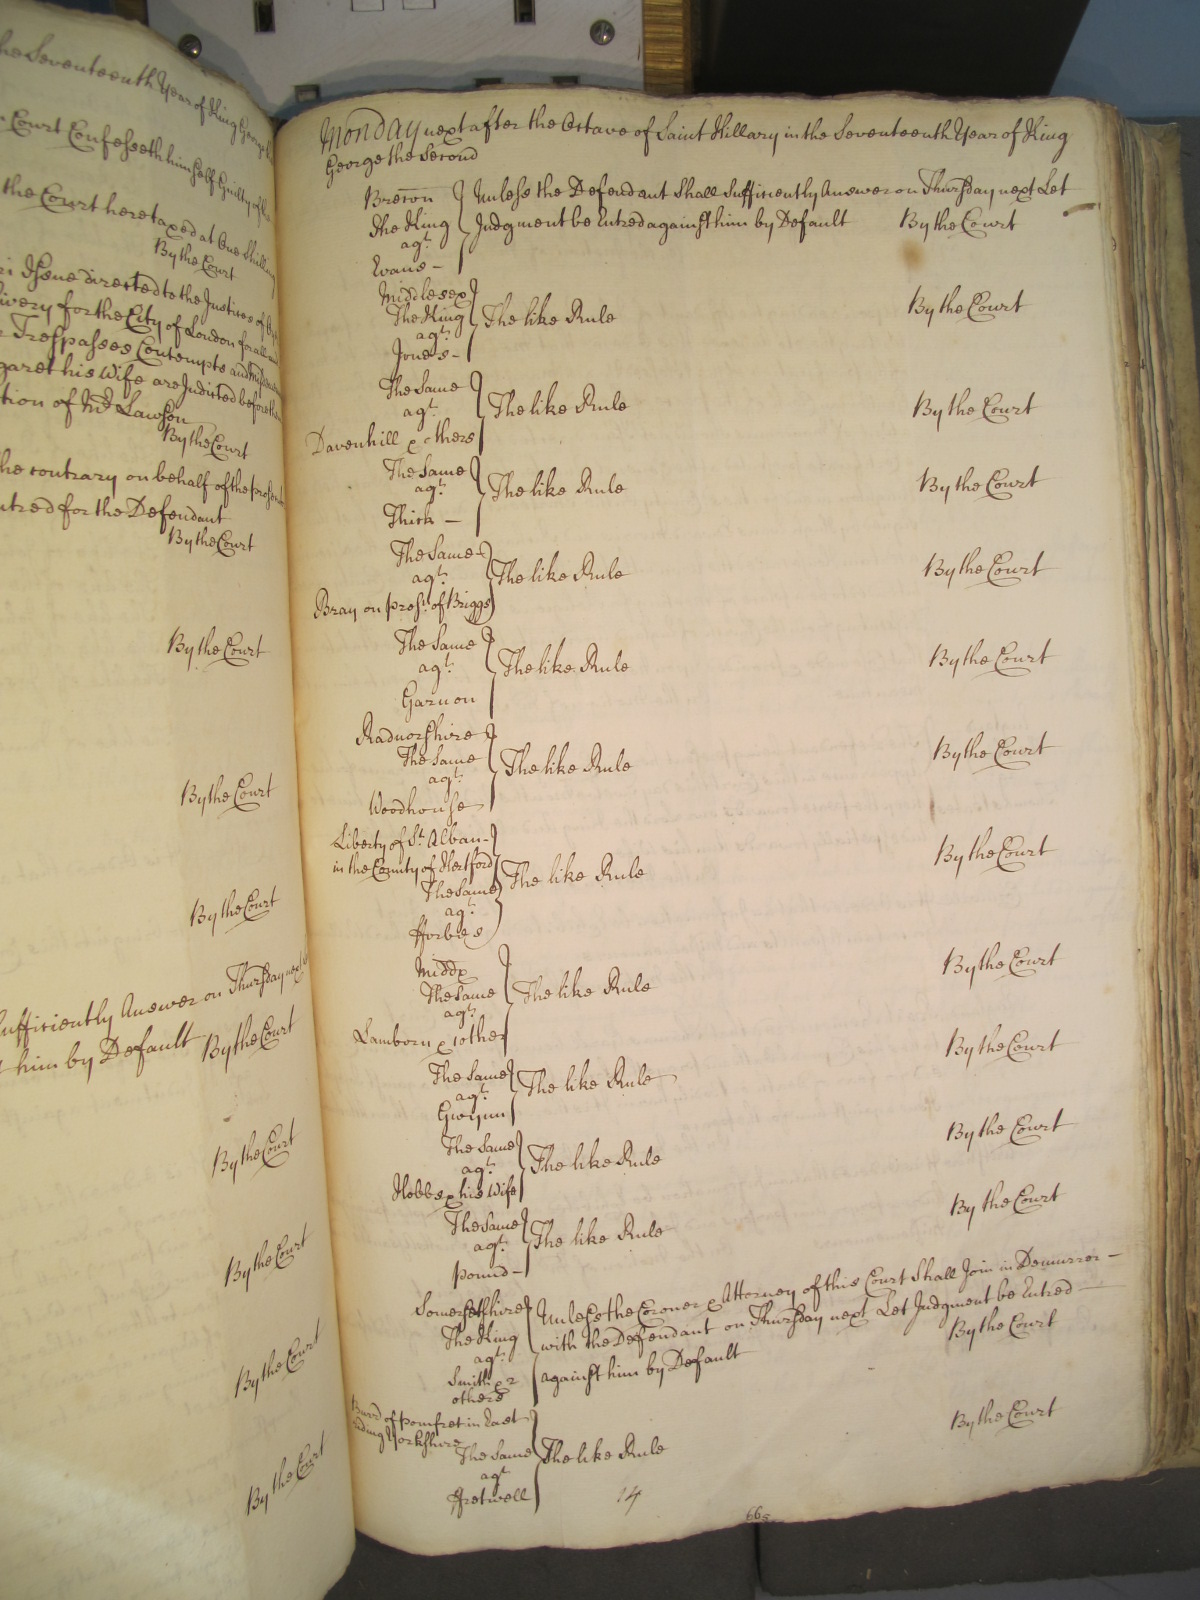 he Seventeenth Year of King George
Court Confesseth himself Guilty of
the Court here taxed at One Shilling
By the Court
Issue directed to the Justices of
livery for the City of London for
Trespasses Contempts and
garet his Wife are Indicted before
tion of Mr. Lawson
By the Court
he contrary on behalf of the
ntred for the Defendant
By the Court
By the Court
By the Court
By the Court
Sufficiently Answer on Thursday next
him by Default By the Court
By the Court
By the Court
By the Court
By the Court
Monday next after the Octave of Saint Hillary in the Seventeenth Year of King
George the Second
Brecon Unless the Defendant Shall Sufficiently Answer on Thursday next Let
The King Judgment be Entred against him by Default By the Court
agt.
Evans -
Middlesex
The King The like Rule By the Court
agt.
Jones -
The Same
agt. The like Rule By the Court
Davenhill & others
The Same
agt. The like Rule By the Court
Thick -
The Same
agt. The like Rule By the Court
Bray on prost. of Briggs
The Same
agt. The like Rule By the Court
Garnon
Radnorshire
The Same The like Rule By the Court
agt.
Woodhouse
Liberty of St. Alban
in the County of Hertford The like Rule By the Court
The Same
agt.
fforbes
Middx
The Same The like Rule By the Court
agt.
Lamborn & 10 ther
The Same The like Rule By the Court
agt.
Gwynn
The Same
agt. The like Rule By the Court
Hobbs & his Wife
The Same
agt. The like Rule By the Court
Pound -
Somersetshire Unless the Coroner & Attorney of this Court Shall Join in Demurrer -
The King with the Defendant on Thursday next Let Judgment be Entred -
agt. against him by Default By the Court
Smith & 2
others
of Pomfret in East
riding Yorkshire
The Same The like Rule By the Court
agt.
ffretwell
14
665